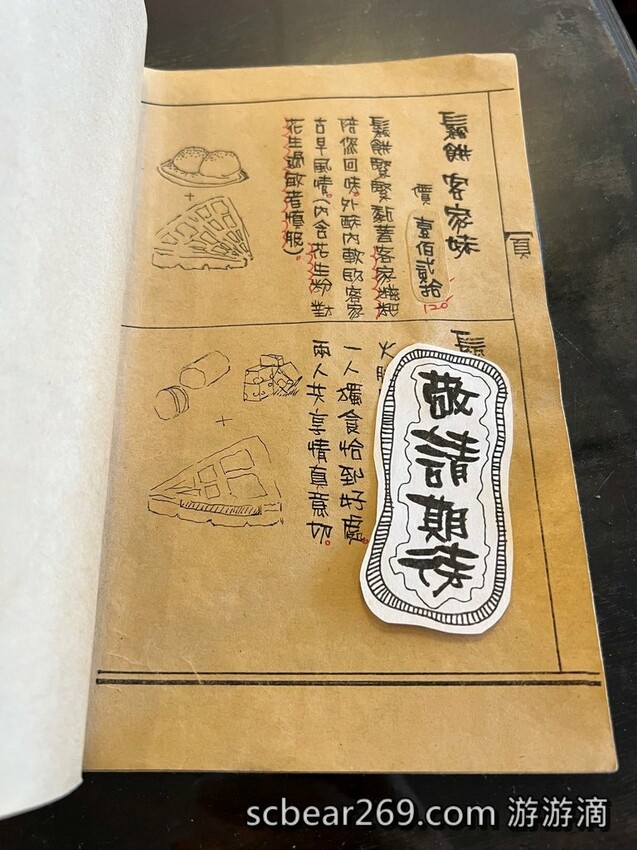 鬆餅 客家妹
價 壹佰貳拾
120
鬆餅緊緊黏著客家麻糬
陪您回味。外酥內軟的客家
古早風情。(內含花生粉 對
花生過敏者慎服)。
頁
鬆
火腿
一人獨食恰到好處。
兩人共享情真意切。
敬請期待
+
+
scbear269.com 游游滴